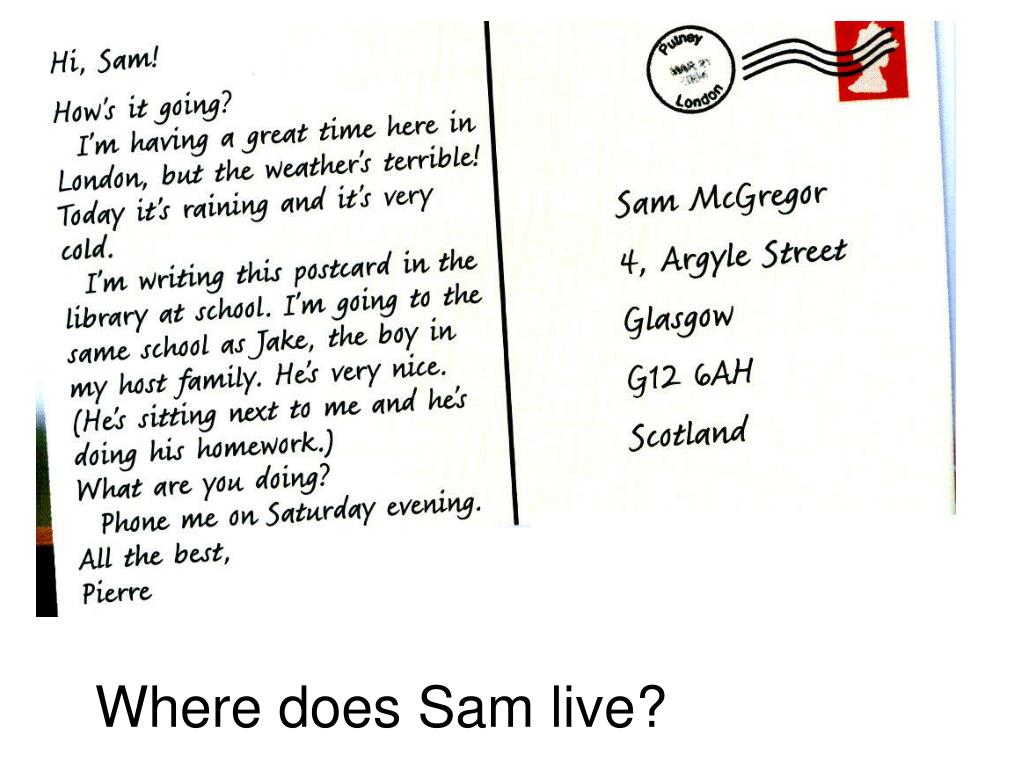 Hi, Sam!
How's it going?
I'm having a great time here in
London, but the weather's terrible!
Today it's raining and it's very
cold.
I'm writing this postcard in the
library at school. I'm going to the
same school as Jake, the boy in
my host family. He's very nice.
(He's sitting next to me and he's
doing his homework.)
What are you doing?
Phone me on Saturday evening.
All the best,
Pierre
Putney
MAR 21
London
Sam McGregor
4, Argyle Street
Glasgow
G12 6AH
Scotland
Where does Sam live?